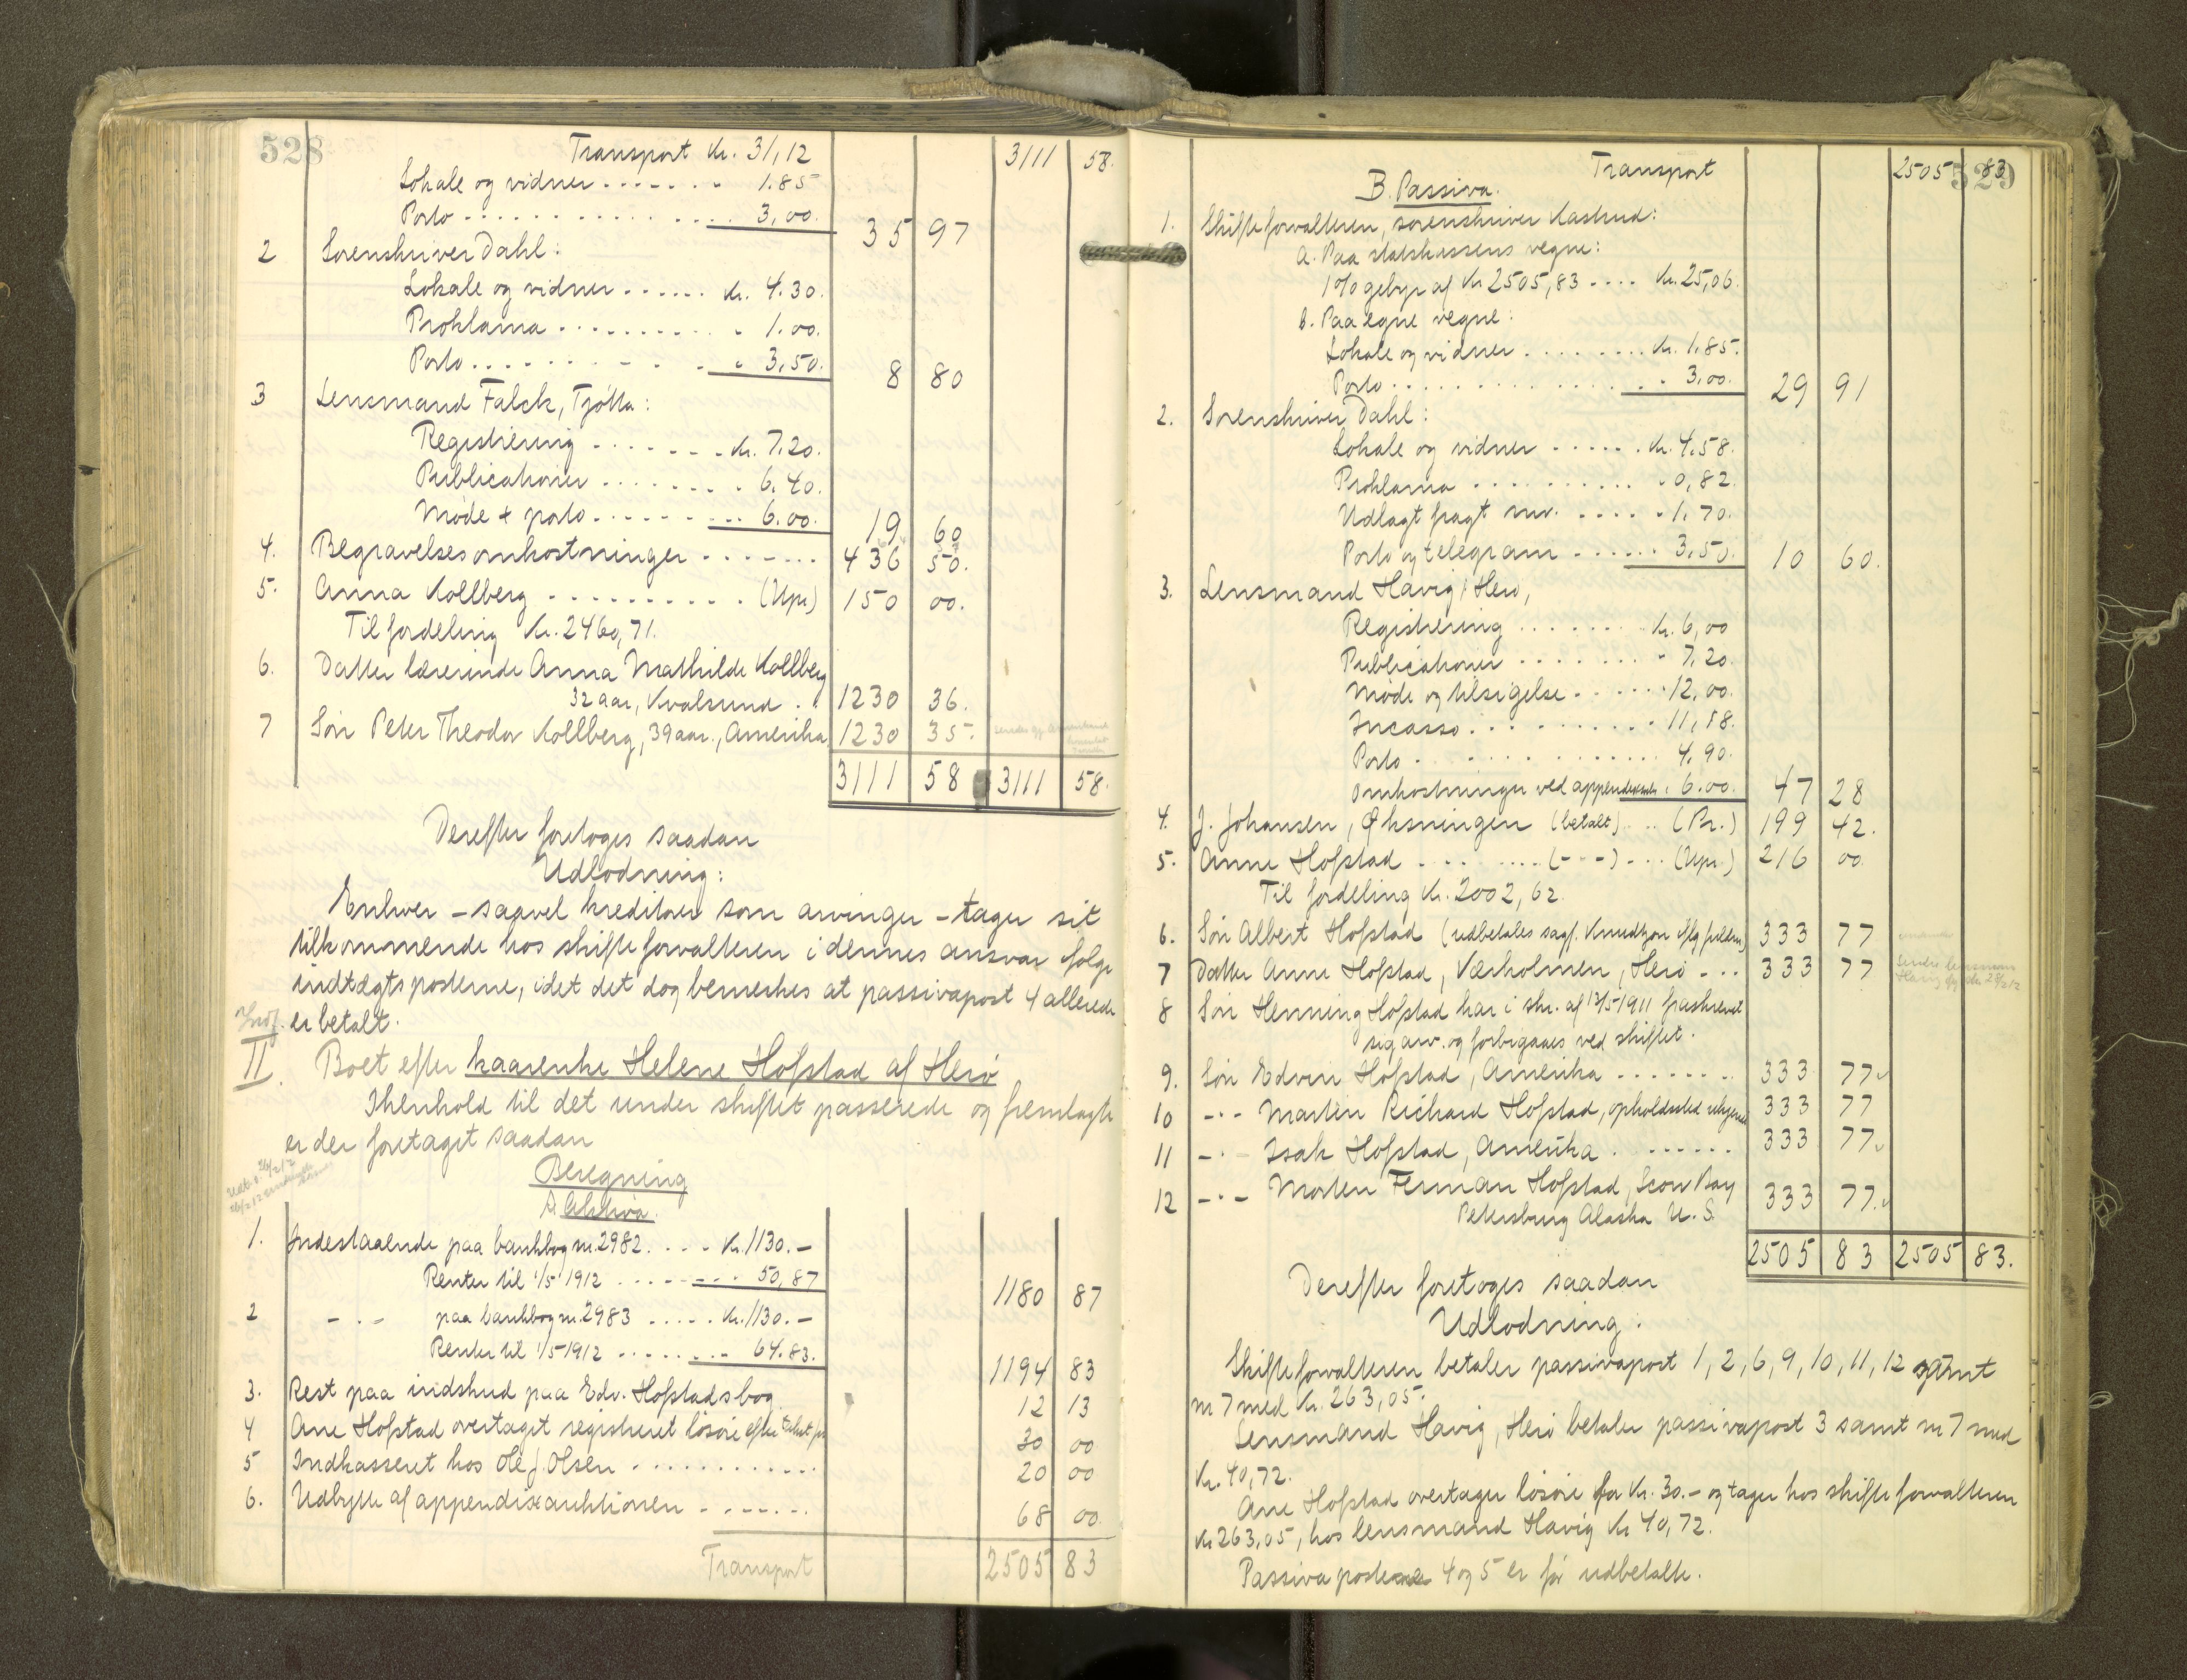 528
Transport Kr. 31,12 3111 58.
Lokale og vidner ------- 1.85
Porto -------------- 3,00. 35 97
2 Sorenskriver Dahl:
Lokale og vidner ------ Kr. 4.30.
Proklama ---------- - 1.00.
Porto ---------- " 3,50. 8 80
3 Lensmand Falck, Tjøtta:
Registrering ------- Kr. 7.20.
Publicationer -------- 6.40.
Møde & porto --------- 6.00. 19 60
4. Begravelsesomkostninger ------- 436 50.
5. Anna Kollberg ---------- (Upr) 150 00.
Til fordeling Kr. 2460,71.
6. Datter lærerinde Anna Mathilde Kollberg
32 aar, Kvalsund . . 1230 36.
7 Søn Peter Theodor Kollberg, 39 aar., Amerika 1230 35.
3111 58 3111 58.
Derefter foretoges saadan
Udlodning:
Enhver – saavel kreditorer som arvinger – tager sit
tilkommende hos skifteforvalteren i dennes ansvar ifølge
indtægtsposterne, idet det dog bemerkes at passivapost 4 allerede
er betalt.
II. Boet efter kaarenke Helene Hofstad af Herø
Ihenhold til det under skiftet passerede og fremlagte
er der foretaget saadan
Beregning
A. Aktiva.
1. Indestaaende paa bankbog nr. 2982. . . - Kr. 1130.–
Renter til 1/5 1912 --------- 50,87 1180 87
2 – . – paa bankbog nr. 2983 ..... Kr. 1130.–
Renter til 1/5 1912 -------- 64.83. 1194 83
3. Rest paa indskud paa Edv. Hofstads bog 12 13
4 Ane Hofstad overtaget registreret løsøre efter takst for 30 00
5 Indkasseret hos Ole J. Olsen ------------ 20 00
6. Udbytte af appendixauktionen ------- 68 00.
Transport 2505 83
529
Transport 2505 83
B. Passiva.
1. Skifteforvalteren, sorenskriver Kaskud:
a. Paa statskassens vegne:
1 % gebyr af Kr 2505,83 .... Kr. 25,06.
b. Paa egne vegne:
Lokale og vidner ........ Kr. 1.85.
Porto ................ 3,00. 29 91
2. Sorenskriver Dahl:
Lokale og vidner ------ Kr. 4,58.
Proklama .......... - 0,82.
Udlagt fragt mv. ..... - 1,70.
Porto og telegram ...... 3,50. 10 60.
3. Lensmand Havig, Herø,
Registrering ........ Kr. 6,00
Publicationer ....... - 7,20.
Møde og tilsigelse ...... 12,00.
Incasso .......... - 11,18.
Porto .............. 4,90.
Omkostninger ved appendixauk. . 6.00. 47 28
4. J. Johansen, Øksningen (betalt) .. (Pr.) 199 42.
5. Anne Hofstad ......... (- - -) ... (Upr.) 216 00.
Til fordeling Kr. 2002,62.
6. Søn Albert Hofstad (udbetales sagf. Knudtzon iflg fuldm) 333 77
7 Datter Anne Hofstad, Værholmen, Herø - .. 333 77
8 Søn Henning Hofstad har i skr. af 13/5 1911 fraskrevet
sig arv. og forbigaaes ved skiftet.
9. Søn Edvin Hofstad, Amerika ------- 333 77
10 – . – Martin Richard Hofstad, opholdssted ubekjendt 333 77
11 – . – Isak Hofstad, Amerika . ------ 333 77
12 – . – Morten Ferman Hofstad, Scow Bay
Petersburg Alaska U. S. 333 77.
2505 83 2505 83.
Derefter foretoges saadan
Udlodning:
Skifteforvalteren betaler passivapost 1, 2, 6, 9, 10, 11, 12 samt
nr 7 med Kr. 263,05.
Lensmand Havig, Herø betaler passivapost 3 samt nr 7 med
Kr. 40,72.
Ane Hofstad overtager løsøre for Kr. 30.– og tager hos skifteforvalteren
Kr 263,05, hos lensmand Havig Kr 40,72.
Passiva posterne 4 og 5 er før udbetalte.